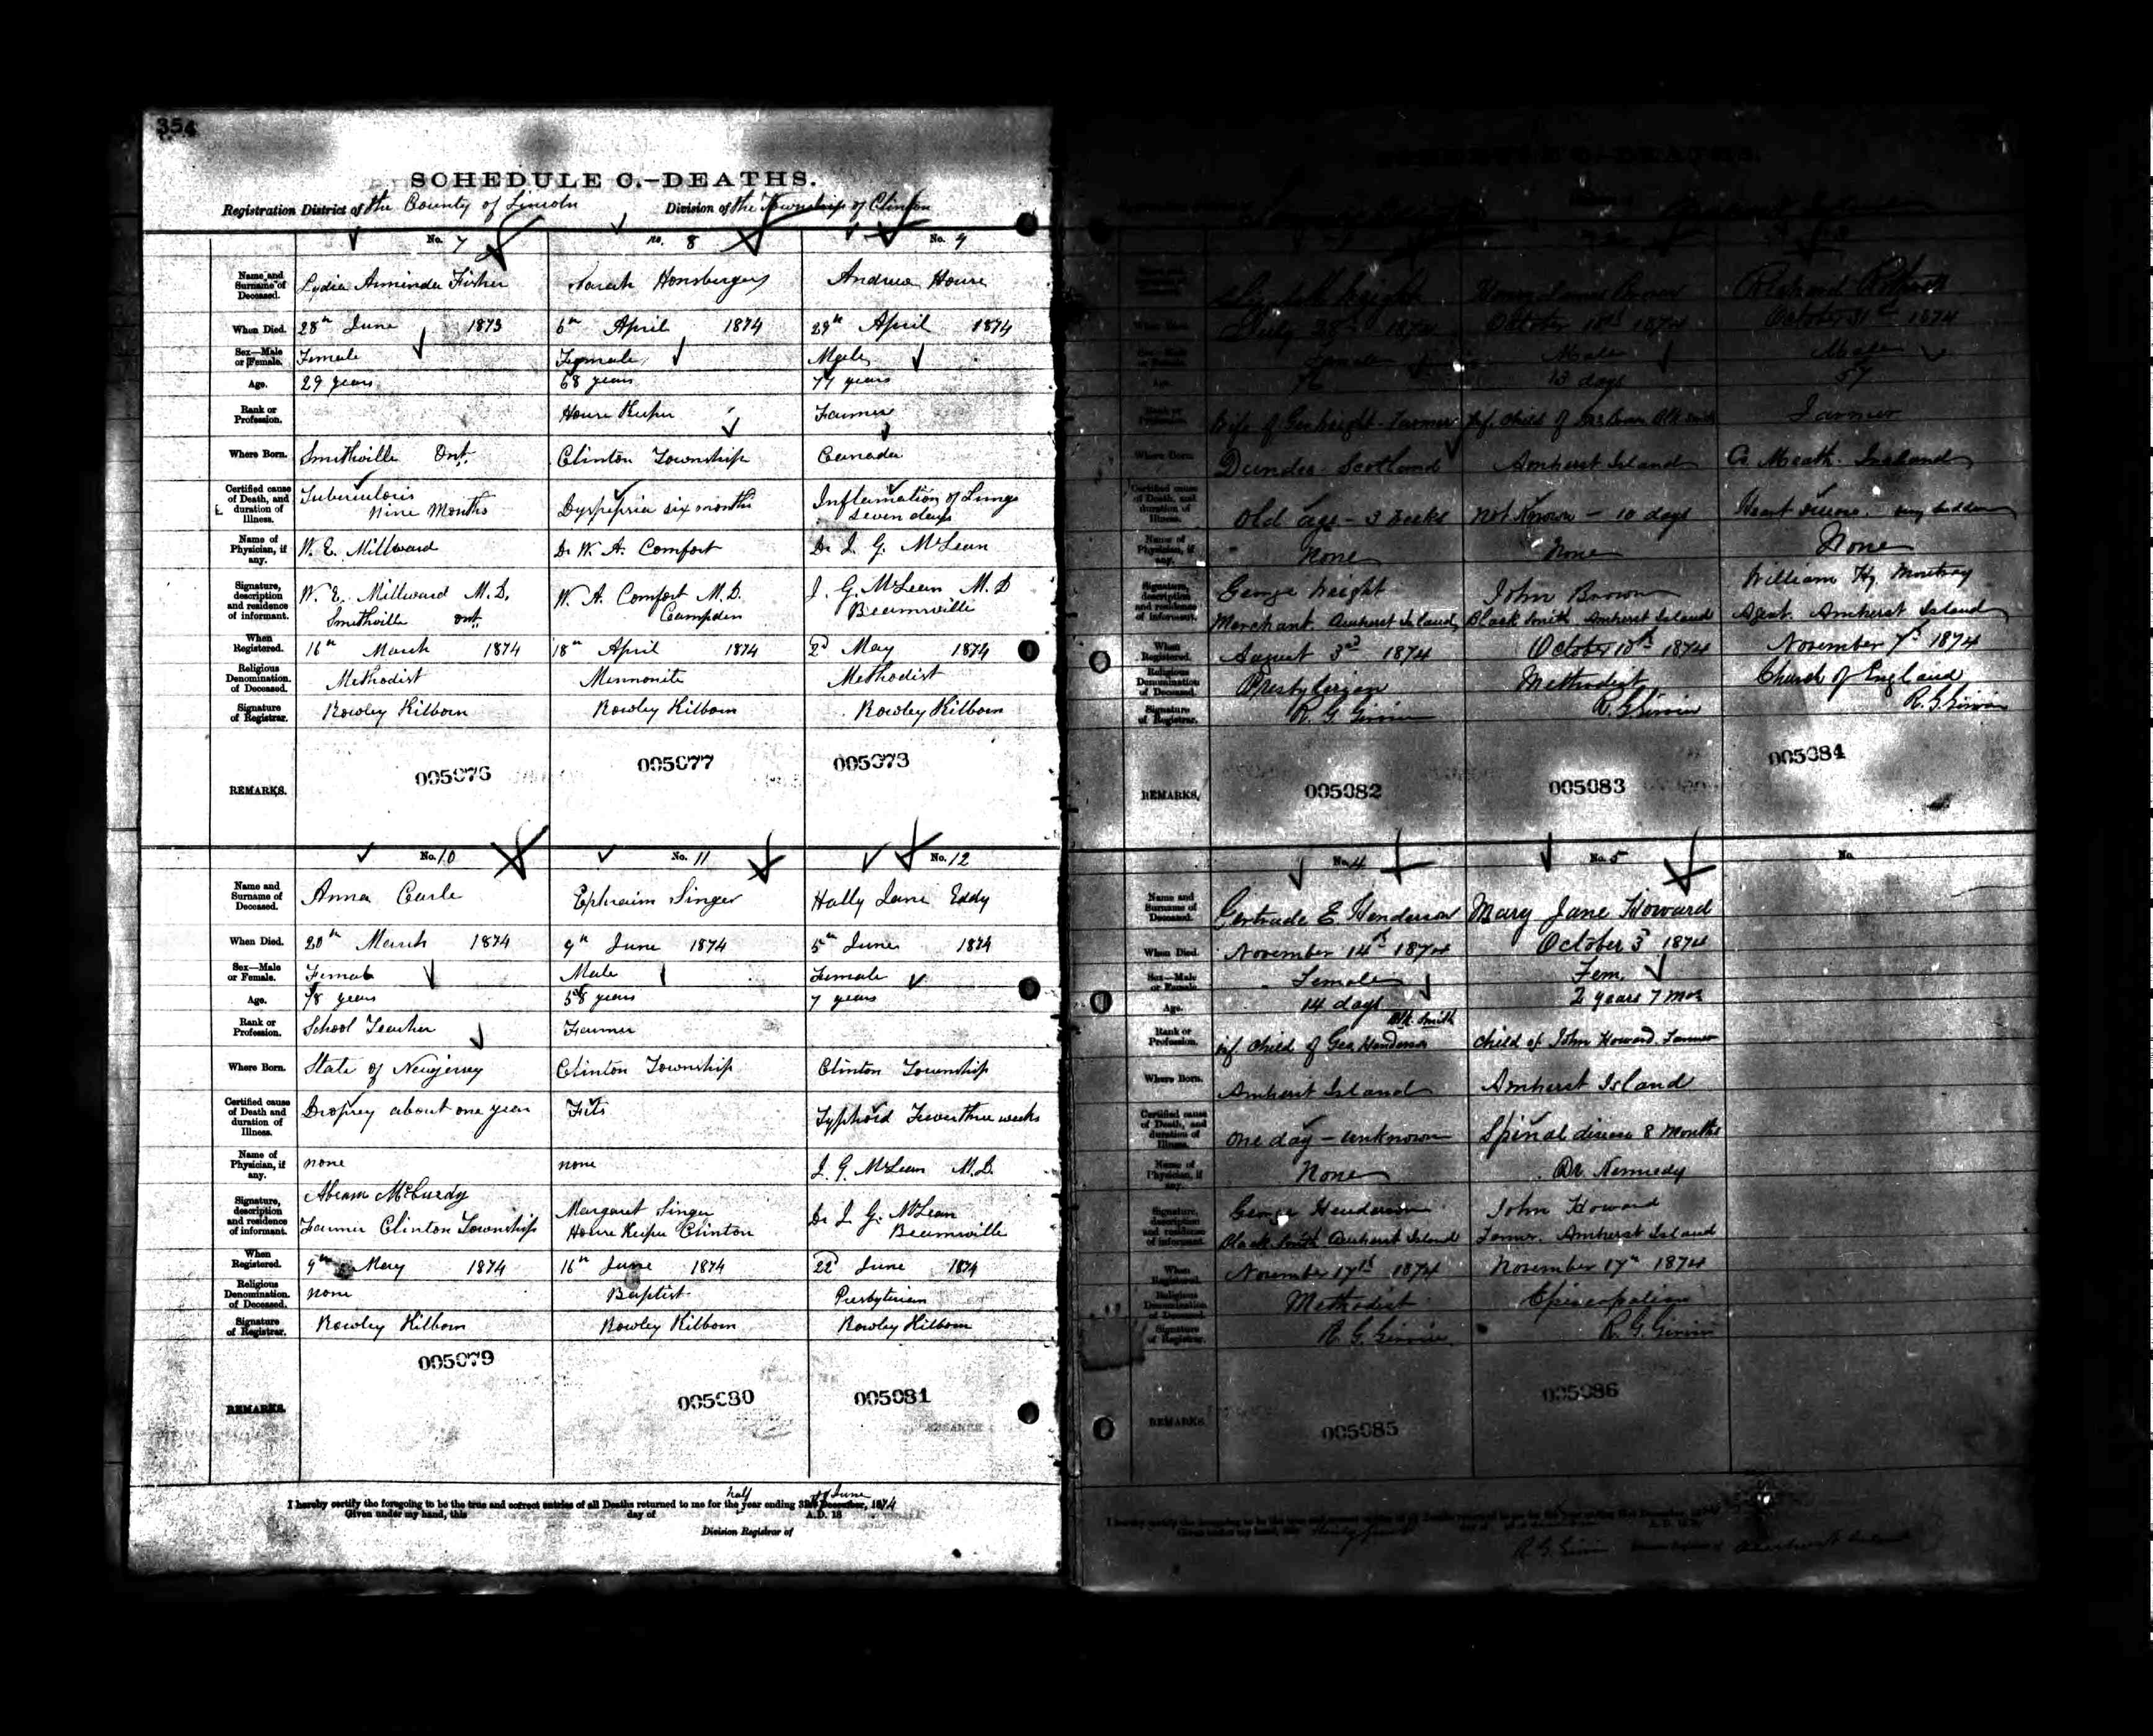 354
SCHEDULE C.—DEATHS.
Registration District of the County of Lincoln Division of the Township of Clinton
No. 7 No. 8 No. 9
Name and Surname of Deceased. Lydia Aminda Fisher Sarah Honsberger Andrew House
When Died. 28th June 1873 6th April 1874 29th April 1874
Sex—Male or Female. Female Female Male
Age. 29 years 68 years 77 years
Rank or Profession. House Keeper Farmer
Where Born. Smithville Ont. Clinton Township Canada
Certified cause of Death, and duration of Illness. Tuberculosis nine Months Dyspepsia six months Inflamation of Lungs seven days
Name of Physician, if any. W. E. Millward Dr W. A. Comfort Dr J. G. McLean
Signature, description and residence of informant. W. E. Millward M.D. Smithville Ont. W. A. Comfort M.D. Campden J. G. McLean M.D Beamsville
When Registered. 16th March 1874 18th April 1874 2d May 1874
Religious Denomination of Deceased. Methodist Mennonite Methodist
Signature of Registrar. Rowley Kilborn Rowley Kilborn Rowley Kilborn
REMARKS. 005076 005077 005078
No. 10 No. 11 No. 12
Name and Surname of Deceased. Anna Carle Ephraim Singer Hally Jane Eddy
When Died. 20th March 1874 9th June 1874 5th June 1874
Sex—Male or Female. Female Male Female
Age. 78 years 58 years 7 years
Rank or Profession. School Teacher Farmer
Where Born. State of Newjersey Clinton Township Clinton Township
Certified cause of Death and duration of Illness. Dropsey about one year Fits Typhoid Fever three weeks
Name of Physician, if any. none none J. G. McLean M.D.
Signature, description and residence of informant. Abram McCurdy Farmer Clinton Township Margaret Singer House Keeper Clinton Dr J. G. McLean Beamsville
When Registered. 9th May 1874 16th June 1874 22d June 1874
Religious Denomination of Deceased. none Baptist Presbyterian
Signature of Registrar. Rowley Kilborn Rowley Kilborn Rowley Kilborn
REMARKS. 005079 005080 005081
I hereby certify the foregoing to be the true and correct entries of all Deaths returned to me for the half year ending June 1874
Given under my hand, this day of A.D. 18
Division Registrar of
SCHEDULE C.—DEATHS.
Wright Henry James Brown Richard
July 1874 October 1874 October 31st 1874
Female Male Male
13 days 57
Wife of Geo Wright - Farmer Inf. child of Brown Blk Smith Farmer
Where Born. Dundee Scotland Amherst Island Co. Meath. Ireland
Certified cause of Death, and duration of Illness. Old age - 3 weeks Not Known - 10 days Heart disease. very sudden
Name of Physician, if any. None None None
Signature, description and residence of informant. George Wright Merchant. Amherst Island John Brown Black Smith Amherst Island William Hy. Montray Agent. Amherst Island
When Registered. August 3rd 1874 October 10th 1874 November 7th 1874
Religious Denomination of Deceased. Presbyterian Methodist Church of England
Signature of Registrar. R. G. Girvin R. G. Girvin R. G. Girvin
REMARKS. 005082 005083 005084
No. 4 No. 5 No.
Name and Surname of Deceased. Gertrude E. Henderson Mary Jane Howard
When Died. November 14th 1874 October 3 1874
Sex—Male or Female. Female Fem.
Age. 14 days 2 years 7 mos
Rank or Profession. inf. child of Geo. Henderson Blk. Smith child of John Howard Farmer
Where Born. Amherst Island Amherst Island
Certified cause of Death, and duration of Illness. one day - unknown Spinal disease 8 Months
Name of Physician, if any. None Dr. Kennedy
Signature, description and residence of informant. George Henderson Black Smith Amherst Island John Howard Farmer. Amherst Island
When Registered. November 17th 1874 November 17th 1874
Religious Denomination of Deceased. Methodist Episcopalian
Signature of Registrar. R. G. Girvin R. G. Girvin
REMARKS 005085 005086
R. G. Girvin Amherst Island